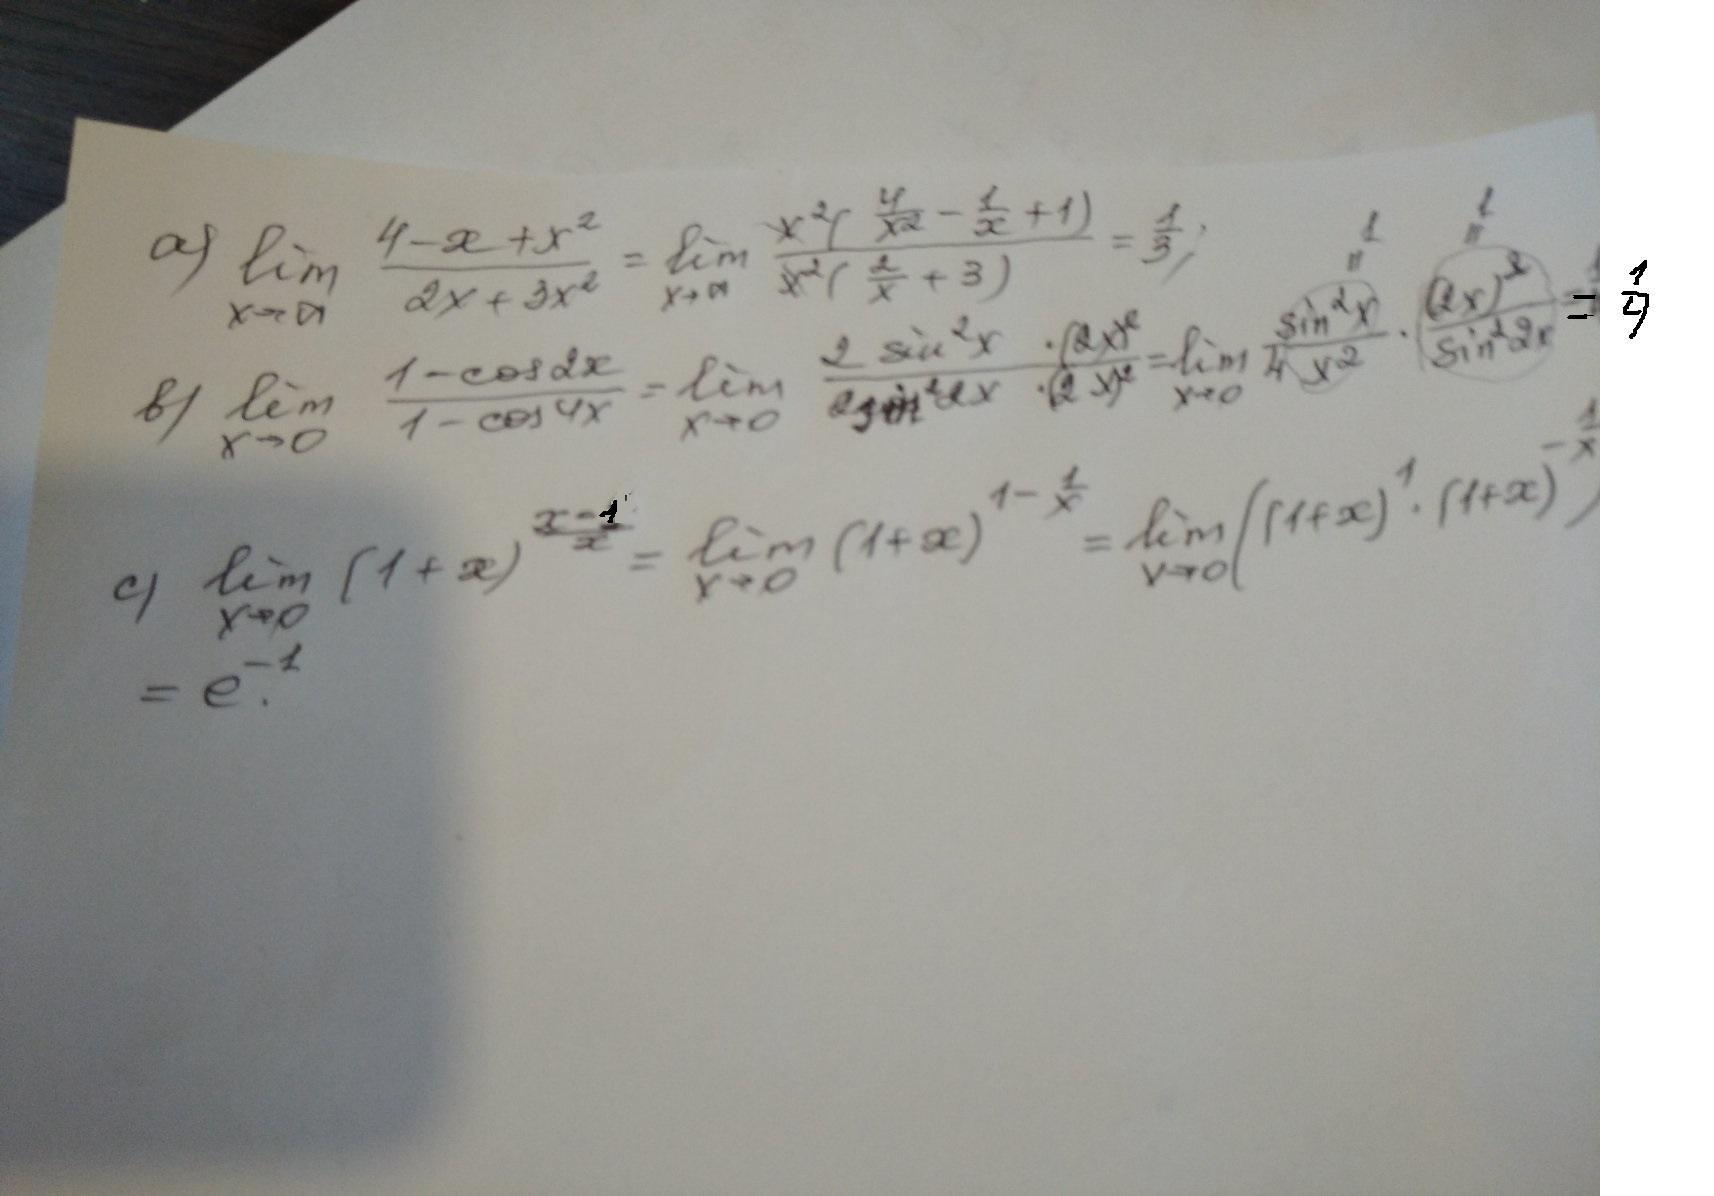 a) lim x→∞ (4-x+x²)/(2x+3x²) = lim x→∞ x²(4/x² - 1/x + 1)/x²(2/x + 3) = 1/3;
b) lim x→0 (1-cos2x)/(1-cos4x) = lim x→0 (2 sin²x · (2x)²)/(2 sin²2x · (2x)²) = lim x→0 sin²x/4x² · (2x)²/sin²2x = 1/4
1 = 1 =
c) lim x→0 (1+x)^((x-1)/x) = lim x→0 (1+x)^(1-1/x) = lim x→0 ((1+x)^1 · (1+x)^(-1/x))
= e^-1.